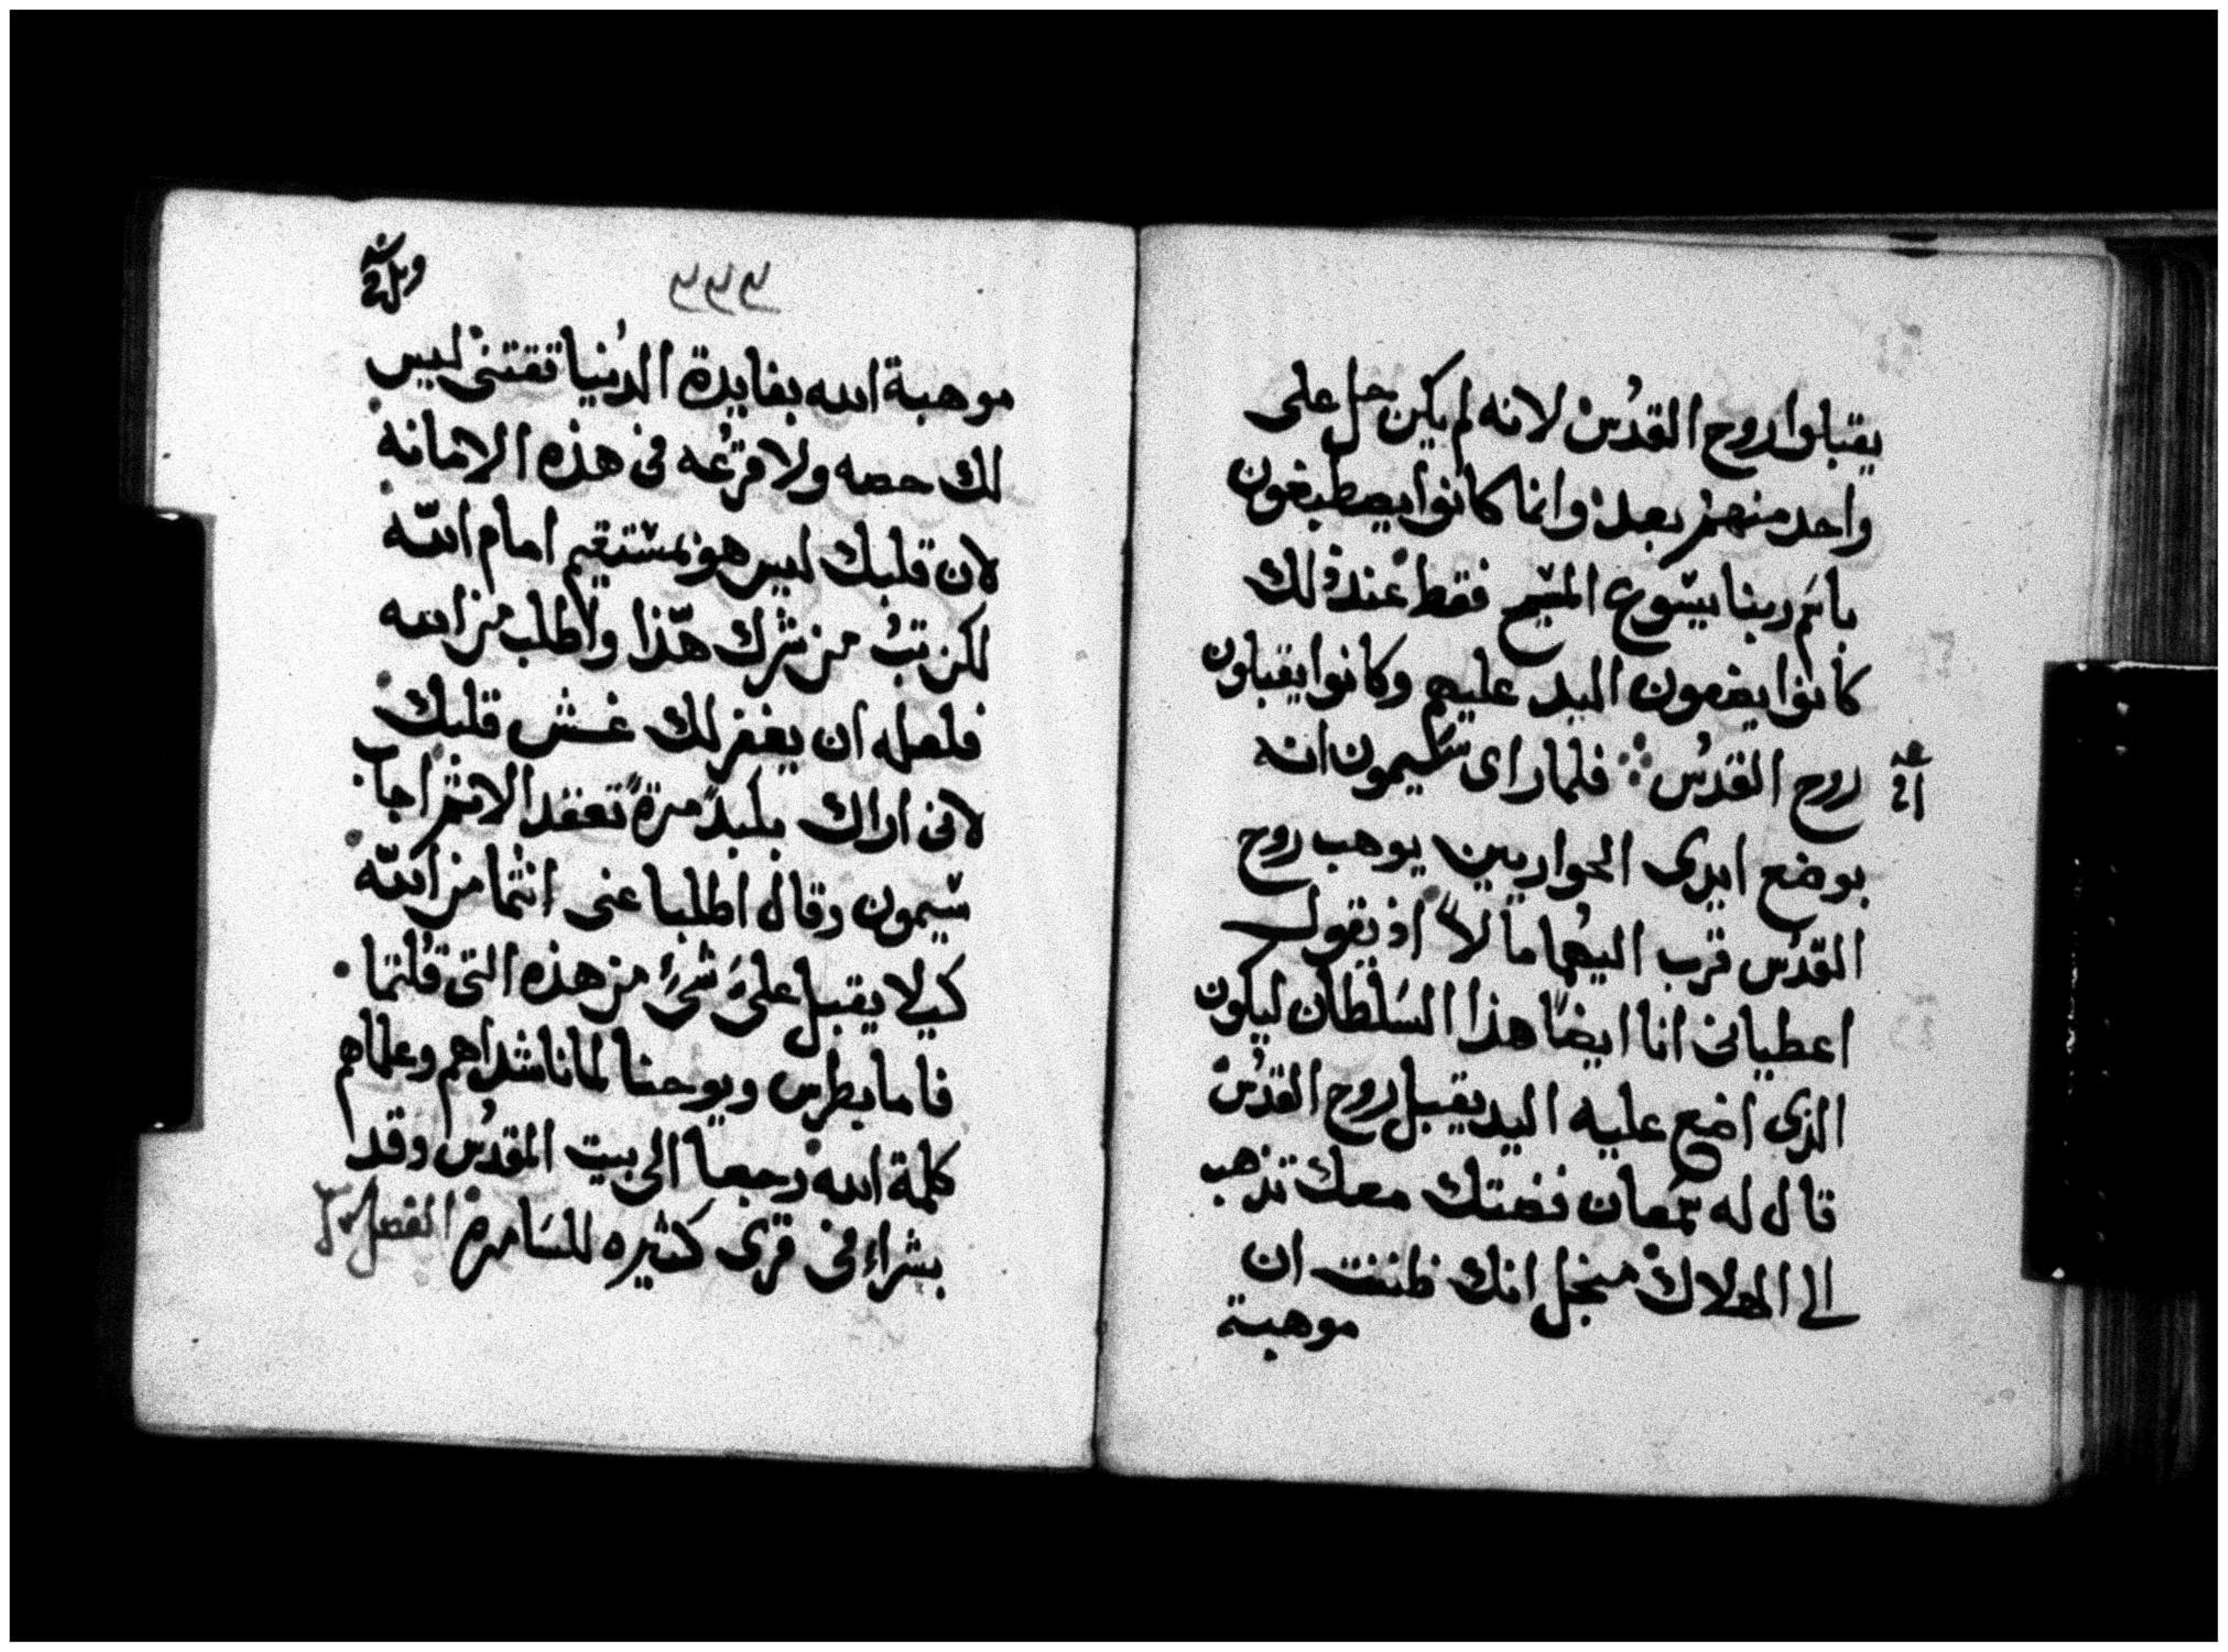 يقبلوا روح القدس لانه لم يكن حل على
واحد منهم بعد وانما كانوا يصطبغون
باسم ربنا يسوع المسيح فقط عند ذلك
كانوا يضعون اليد عليهم وكانوا يقبلون
روح القدس فلما راى سيمون انه
بوضع ايدى الحواريين يوهب روح
القدس قرب اليهما مالاً اذ يقول
اعطيانى انا ايضاً هذا السلطان ليكون
الذى اضع عليه اليد يقبل روح القدس
قال له سمعان فضتك معك تذهب
الى الهلاك منجل انك ظننت ان
موهبة
موهبة الله بفايدة الدنيا تقتنى ليس
لك حصه ولا قرعه فى هذه الامانه
لان قلبك ليس هو بمستقيم امام الله
لكن تب من شرك هذا واطلب من الله
فلعله ان يغفر لك غش قلبك
لانى اراك بكبد مرة تعقد الاثم اجاب
سيمون وقال اطلبا عنى انتما من الله
كيلا يقبل علىّ شئ من هذه التى قلتما
فاما بطرس ويوحنا لما ناشداهم وعلماهم
كلمة الله رجعا الى بيت المقدس وقد
بشراء فى قرى كثيره للسامرة الفصل